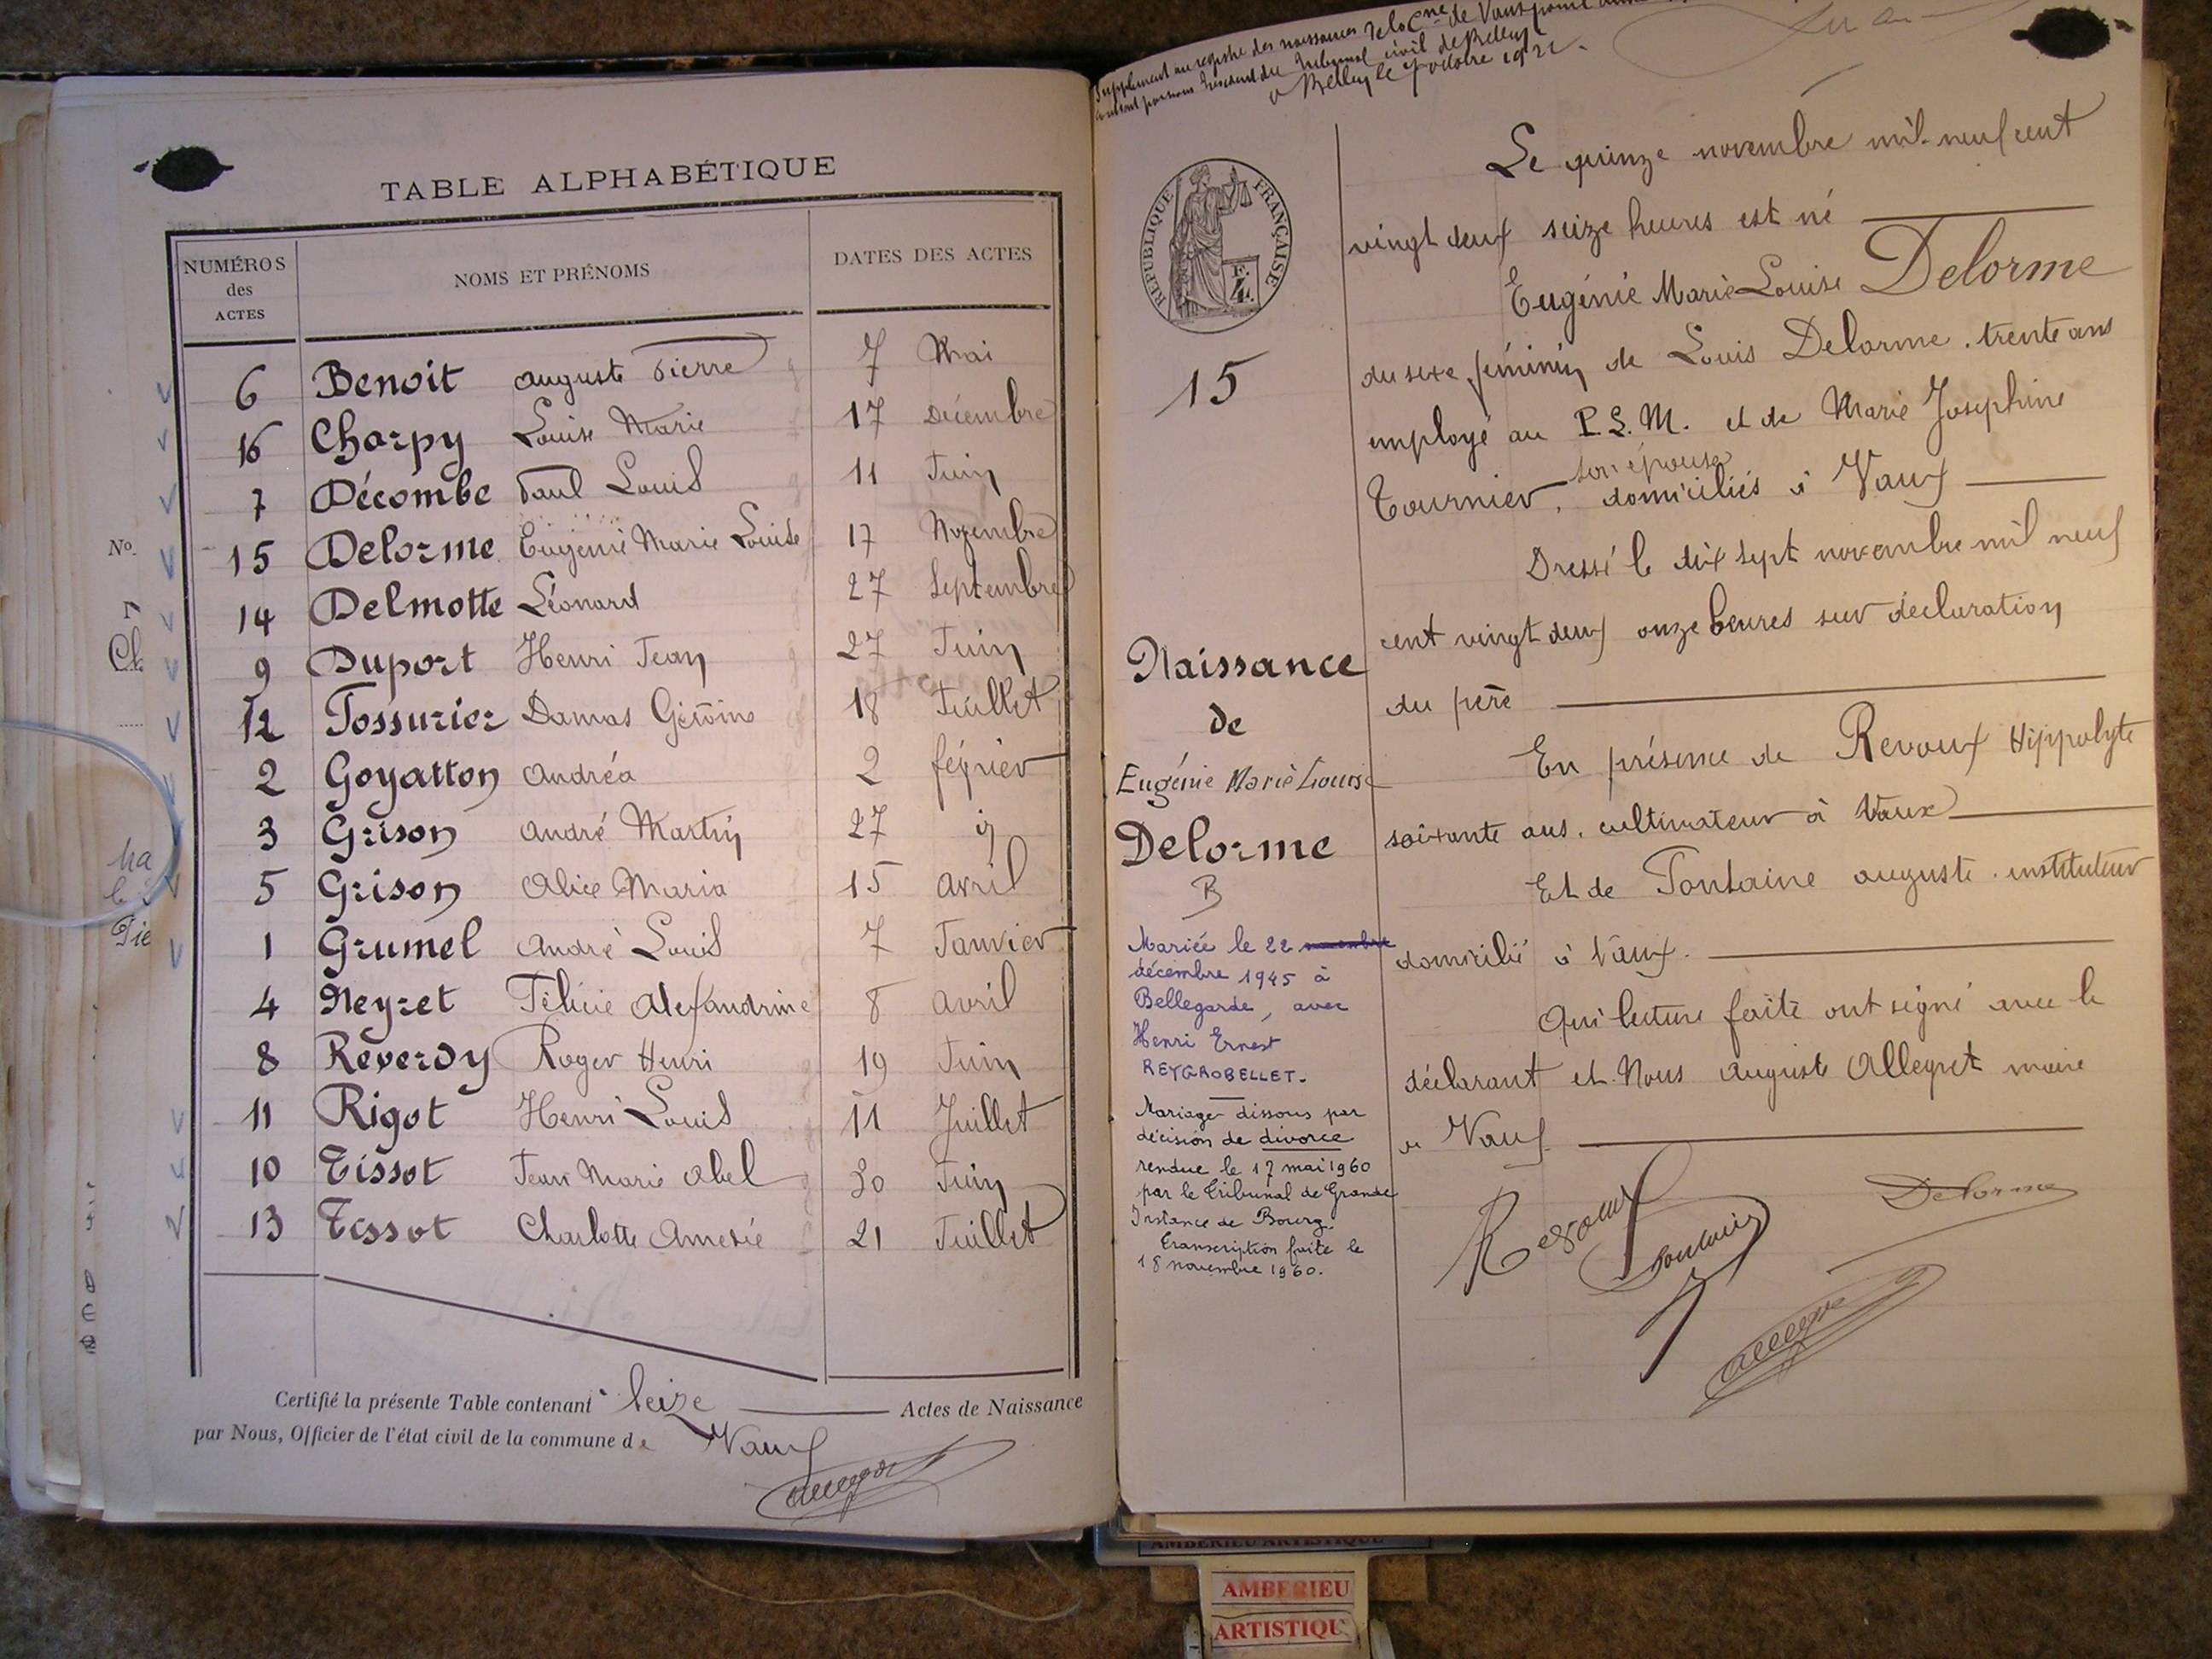 TABLE ALPHABÉTIQUE
NUMÉROS des ACTES NOMS ET PRÉNOMS DATES DES ACTES
6 Benoit Auguste Pierre 7 Mai
16 Charpy Louise Marie 17 Décembre
7 Décombe Paul Louis 11 Juin
15 Delorme Eugénie Marie Louise 17 Novembre
14 Delmotte Léonard 27 Septembre
9 Duport Henri Jean 27 Juin
12 Fossurier Damas 18 Juillet
2 Goyatton Andréa 2 février
3 Grison André Martin 27
5 Grison Alice Maria 15 Avril
1 Grumel André Louis 7 Janvier
4 Neyret Félicie Alexandrine 8 Avril
8 Reverdy Roger Henri 19 Juin
11 Rigot Henri Louis 11 Juillet
10 Tissot Jean Marie Abel 30 Juin
13 Tissot Charlotte 21 Juillet
Certifié la présente Table contenant seize Actes de Naissance
par Nous, Officier de l'état civil de la commune de Vaux
No.
Supplément au registre des naissances de la Cne de Vaux
Président du Tribunal civil de Belley
à Belley le 7 octobre 1922.
RÉPUBLIQUE FRANÇAISE
15
Naissance
de
Eugénie Marie Louise
Delorme
B
Mariée le 22 novembre
décembre 1945 à
Bellegarde, avec
Henri Ernest
REYGROBELLET.
Mariage dissous par
décision de divorce
rendue le 17 mai 1960
par le Tribunal de Grande
Instance de Bourg.
Transcription faite le
18 novembre 1960.
Le quinze novembre mil neuf cent
vingt deux seize heures est né
Eugénie Marie Louise Delorme
du sexe féminin de Louis Delorme, trente ans
employé au P.L.M. et de Marie Joséphine
son épouse
Tournier, domiciliés à Vaux
Dressé le dix sept novembre mil neuf
cent vingt deux onze heures sur déclaration
du père
En présence de Revoux Hippolyte
soixante ans, cultivateur à Vaux
Et de Fontaine Auguste, instituteur
domicilié à Vaux.
Qui lecture faite ont signé avec le
déclarant et Nous Auguste Allegret maire
de Vaux
Revoux Fontaine Delorme
AMBERIEU ARTISTIQUE
AMBERIEU
ARTISTIQU